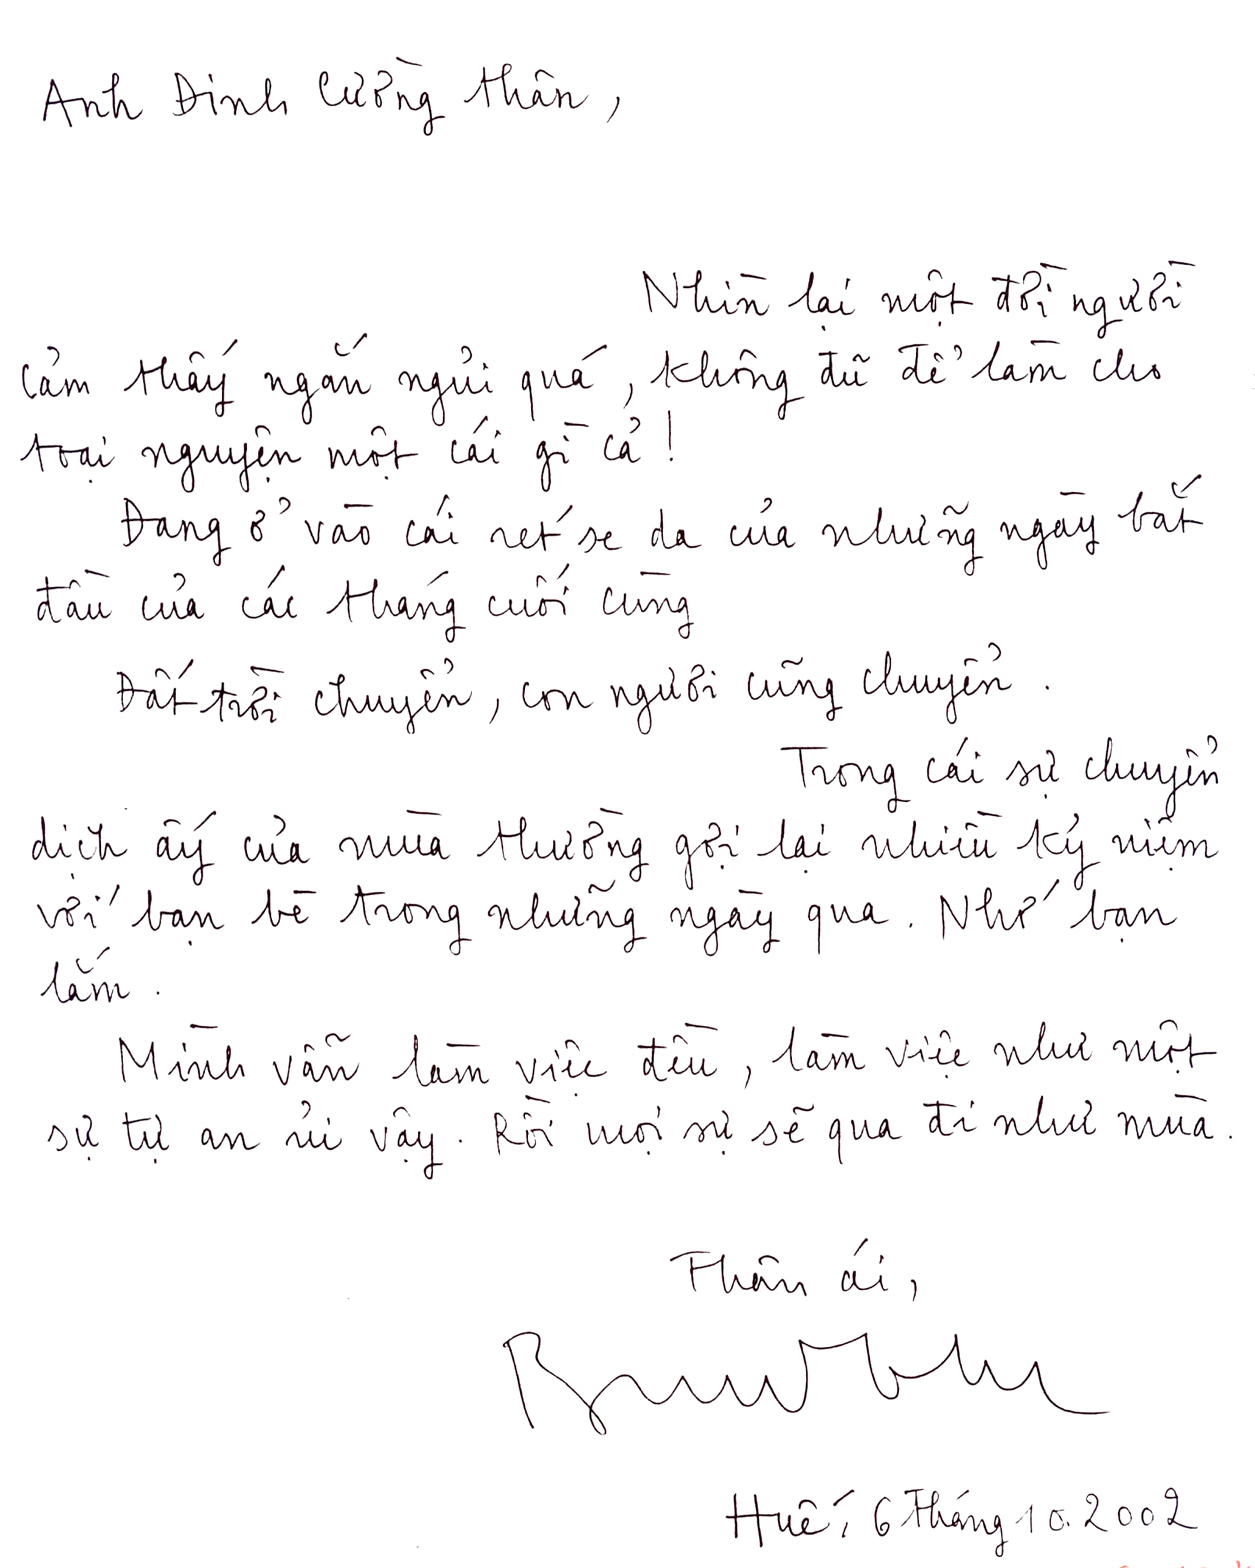 Anh Đinh Cường thân,
Nhìn lại một đời người
cảm thấy ngắn ngủi quá, không đủ để làm cho
toại nguyện một cái gì cả!
Đang ở vào cái rét se da của những ngày bắt
đầu của các tháng cuối cùng
Đất trời chuyển, con người cũng chuyển.
Trong cái sự chuyển
dịch ấy của mùa thường gợi lại nhiều kỷ niệm
với bạn bè trong những ngày qua. Nhớ bạn
lắm.
Mình vẫn làm việc đều, làm việc như một
sự tự an ủi vậy. Rồi mọi sự sẽ qua đi như mùa.
Thân ái,
Huế, 6 Tháng 10.2002